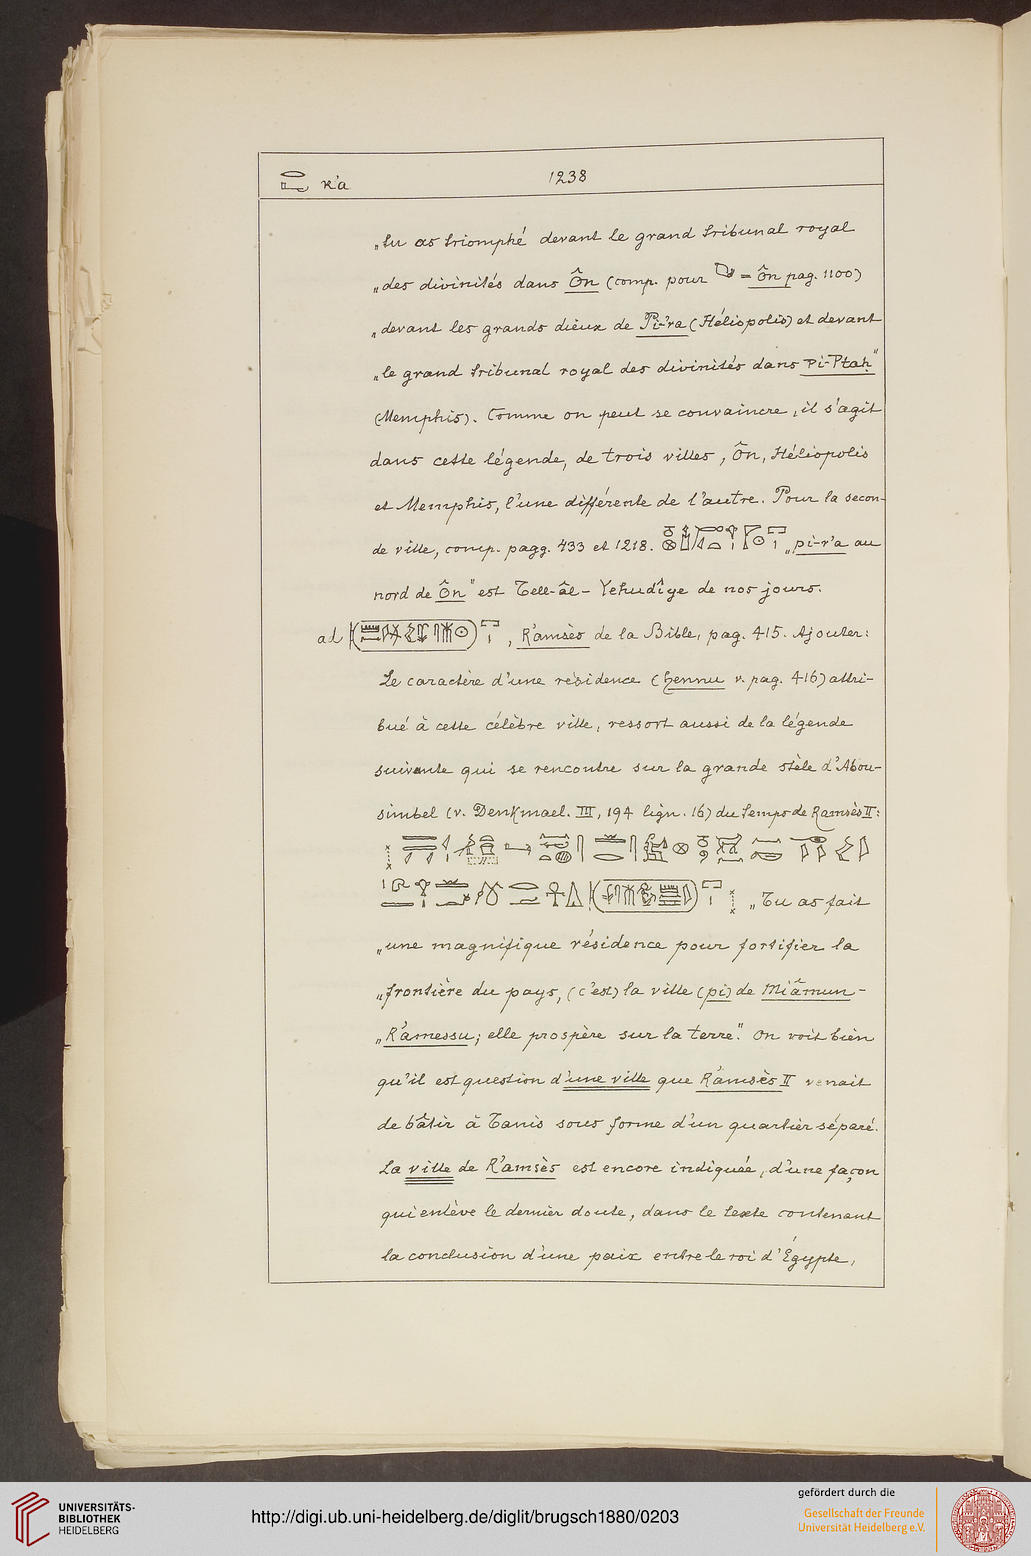 R'a 1238
„tu as triomphé devant le grand tribunal royal
„des divinités dans Ôn (comp. pour = Ôn pag. 1100)
„devant les grands dieux de Pi-'ra (Héliopolis) et devant
„le grand tribunal royal des divinités dans Pi-Ptaḥ"
(Memphis). Comme on peut se convaincre, il s'agit
dans cette légende, de trois villes, Ôn, Héliopolis
et Memphis, l'une différente de l'autre. Pour la secon-
de ville, comp. pagg. 433 et 1218. „pi-r'a au
nord de Ôn" est Tell-âl-Yehudîye de nos jours.
ad , R'amsès de la Bible, pag. 415. Ajouter:
Le caractère d'une résidence (ẖennu v. pag. 416) attri-
bué à cette célèbre ville, ressort aussi de la légende
suivante qui se rencontre sur la grande stèle d'Abou-
simbel (v. Denkmael. III, 194 lign. 16) du temps de Ramsès II:
„Tu as fait
„une magnifique résidence pour fortifier la
„frontière du pays, (c'est) la ville (pi) de Miâmun-
„R'amessu; elle prospère sur la terre". On voit bien
qu'il est question d'une ville que R'amsès II venait
de bâtir à Tanis sous forme d'un quartier séparé.
La ville de R'amsès est encore indiquée, d'une façon
qui enlève le dernier doute, dans le texte contenant
la conclusion d'une paix entre le roi d'Égypte,
UNIVERSITÄTS-
BIBLIOTHEK
HEIDELBERG
http://digi.ub.uni-heidelberg.de/diglit/brugsch1880/0203
gefördert durch die
Gesellschaft der Freunde
Universität Heidelberg e.V.